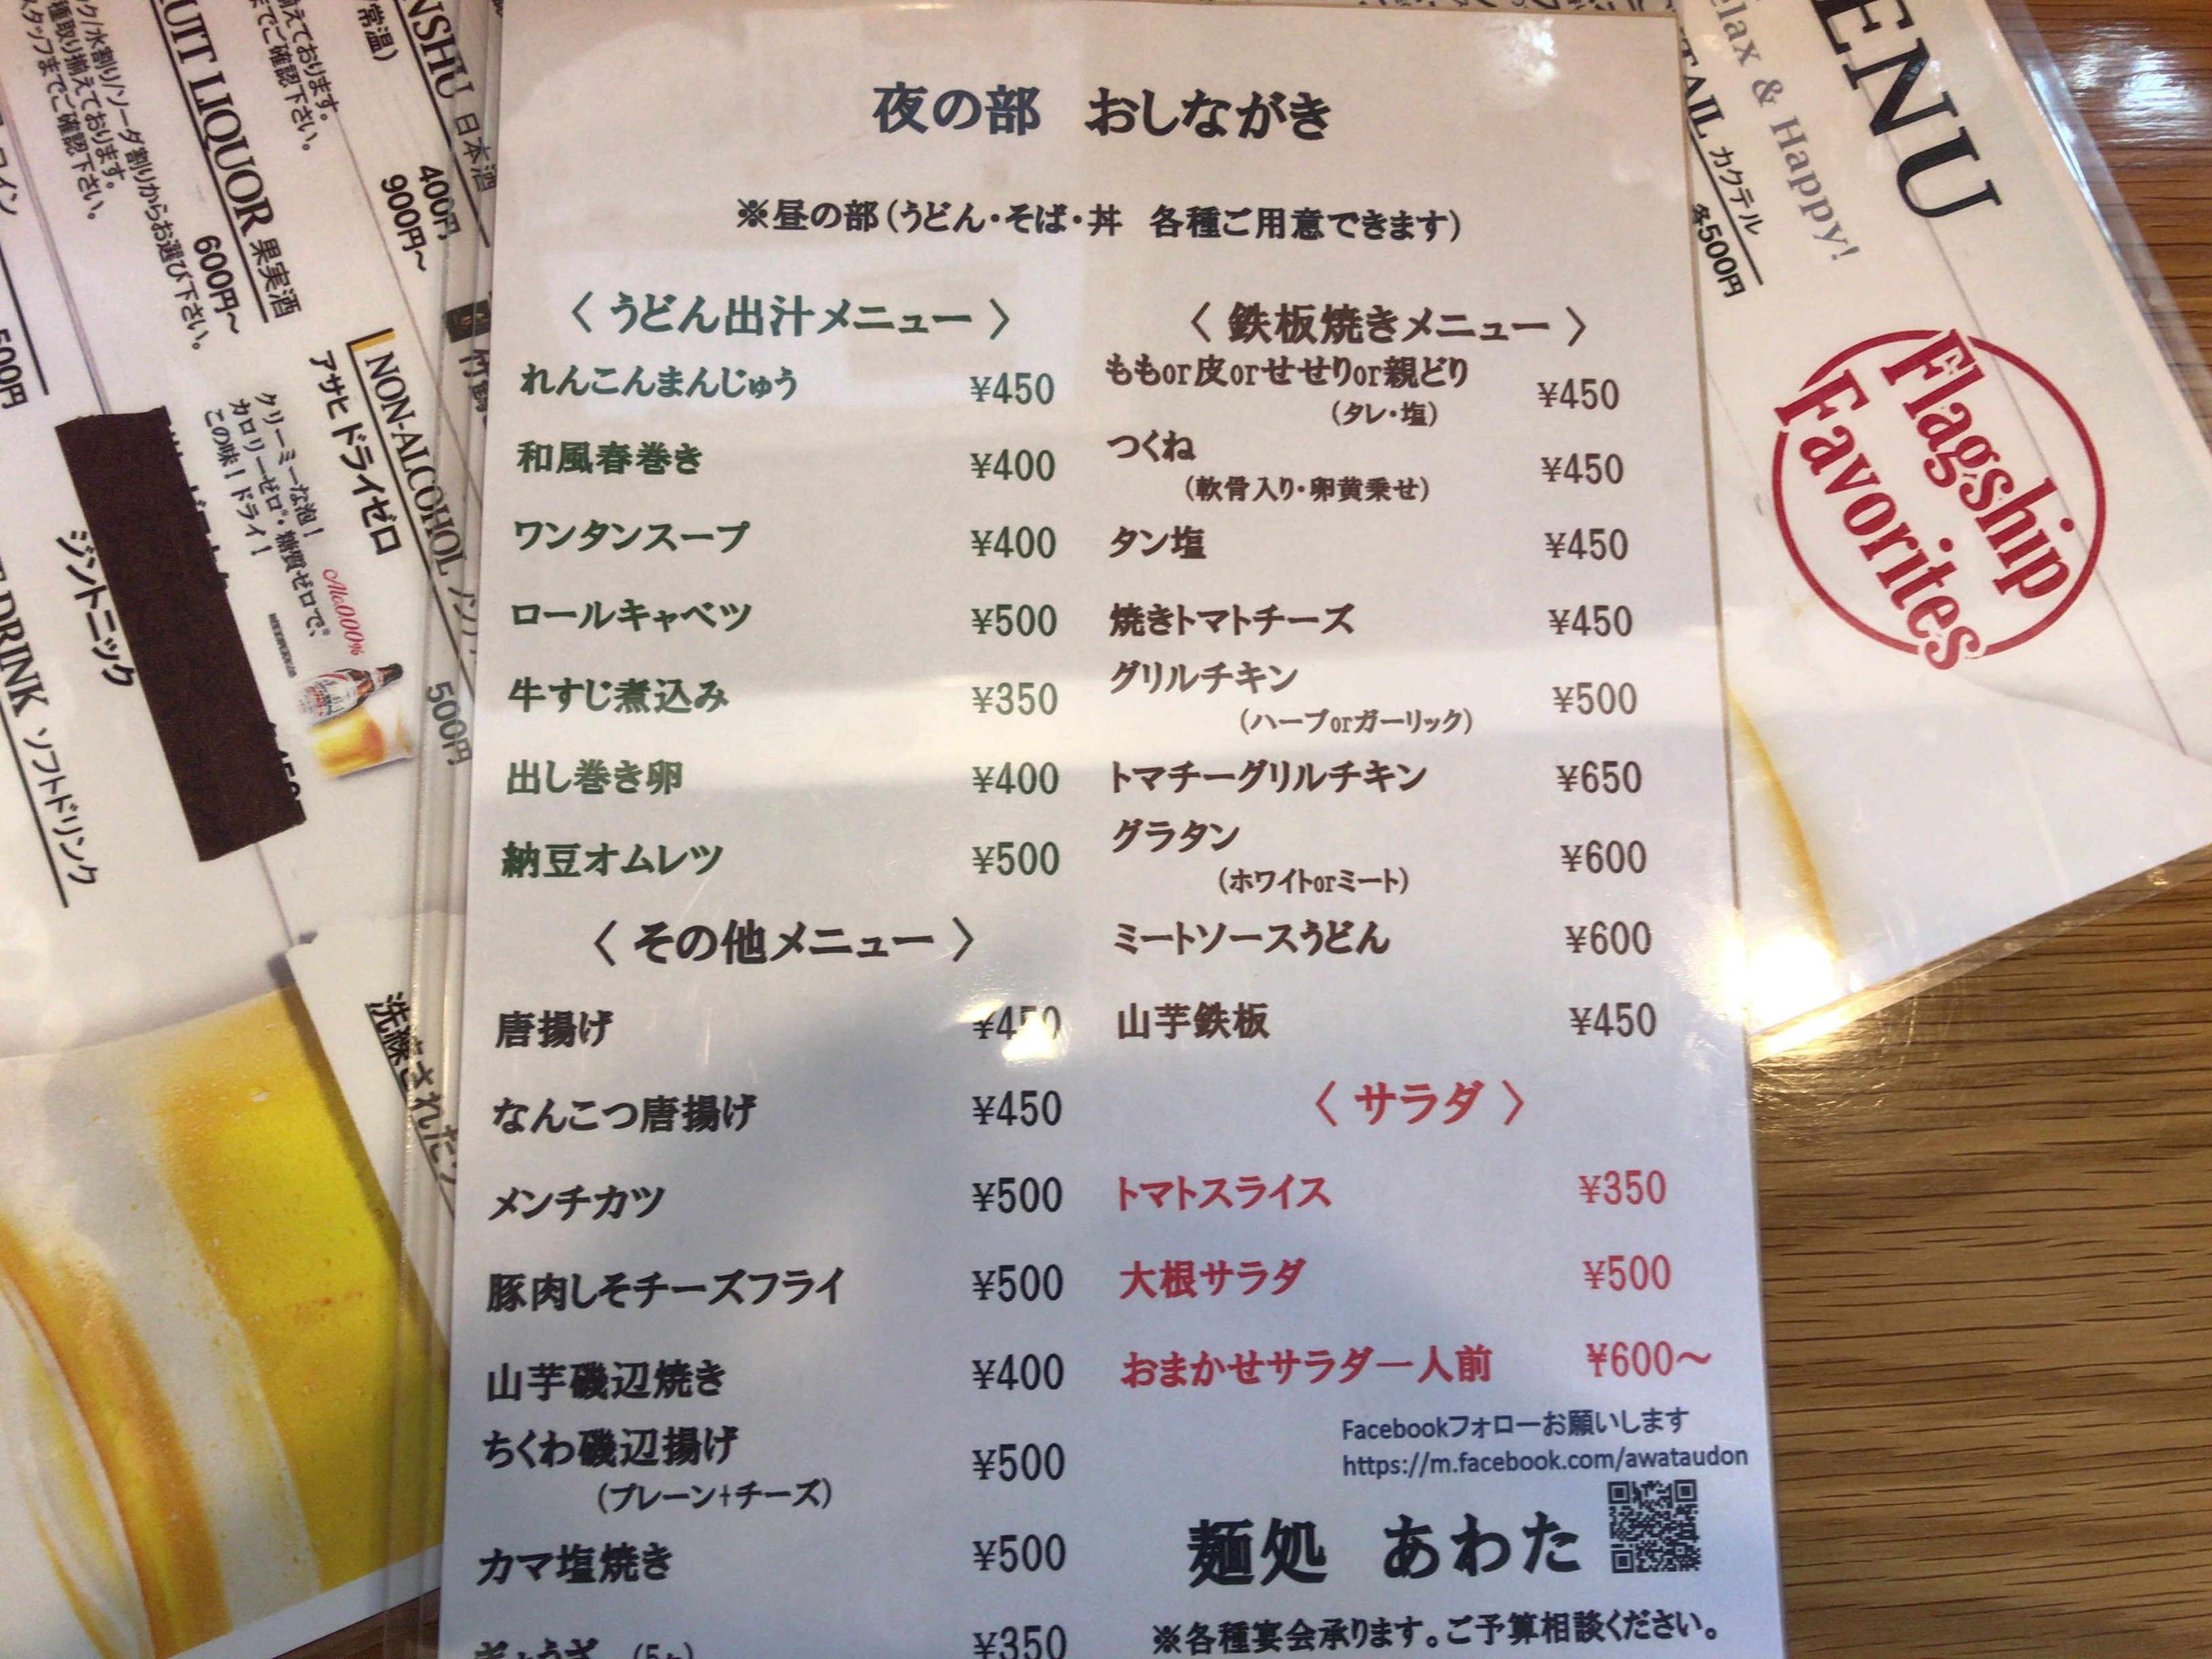 夜の部 おしながき
※昼の部(うどん・そば・丼 各種ご用意できます)
〈 うどん出汁メニュー 〉
れんこんまんじゅう ¥450
和風春巻き ¥400
ワンタンスープ ¥400
ロールキャベツ ¥500
牛すじ煮込み ¥350
出し巻き卵 ¥400
納豆オムレツ ¥500
〈 その他メニュー 〉
唐揚げ ¥450
なんこつ唐揚げ ¥450
メンチカツ ¥500
豚肉しそチーズフライ ¥500
山芋磯辺焼き ¥400
ちくわ磯辺揚げ ¥500
(プレーン+チーズ)
カマ塩焼き ¥500
ぎょうざ ¥350
〈 鉄板焼きメニュー 〉
ももor皮orせせりor親どり ¥450
(タレ・塩)
つくね ¥450
(軟骨入り・卵黄乗せ)
タン塩 ¥450
焼きトマトチーズ ¥450
グリルチキン ¥500
(ハーブorガーリック)
トマチーグリルチキン ¥650
グラタン ¥600
(ホワイトorミート)
ミートソースうどん ¥600
山芋鉄板 ¥450
〈 サラダ 〉
トマトスライス ¥350
大根サラダ ¥500
おまかせサラダ一人前 ¥600～
Facebookフォローお願いします
https://m.facebook.com/awataudon
麺処 あわた
※各種宴会承ります。ご予算相談ください。
ENU
elax & Happy!
TAIL カクテル
各500円
Flagship
Favorites
NSHU 日本酒
常温)
400円
900円～
えております。
までご確認下さい。
UIT LIQUOR 果実酒
ク/水割り/ソーダ割りからお選び下さい。
種取り揃えております。
スタッフまでご確認下さい。
600円～
NON-ALCOHOL
アサヒ ドライゼロ
クリーミーな泡!
カロリーゼロ・糖質ゼロで、
この味!ドライ!
Alc.0.00%
500円
500円
ジントニック
DRINK ソフトドリンク
洗練された